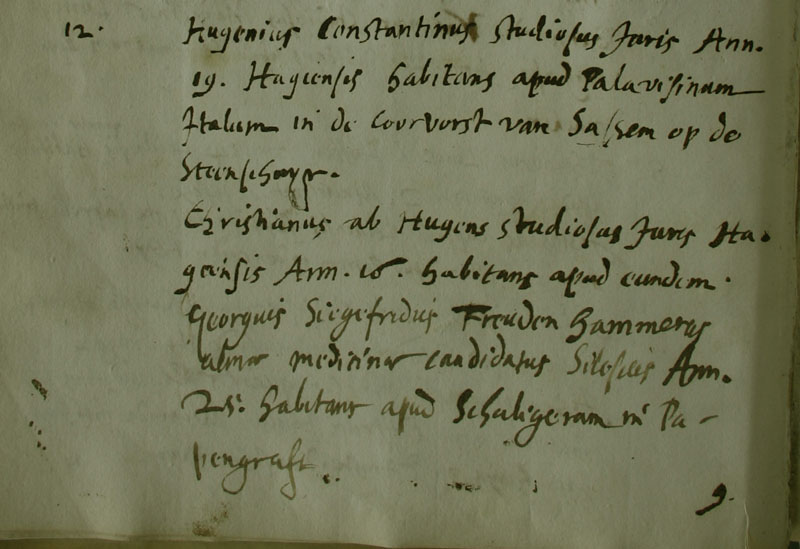 12. Hugenius Constantinus studiosus Juris Ann.
19. Hagiensis habitans apud Palavisinum
Italum in de Coorvorst van Sassem op de
Steenschuyr.
Christianus ab Hugens studiosus Juris Ha-
geensis Ann. 16. habitans apud eundem.
Georgius Siegefridus Freudenhammerus
almæ medicinæ candidatus Silesius Ann.
25. habitans apud Schaligeram in Pa-
pengraft.
9.